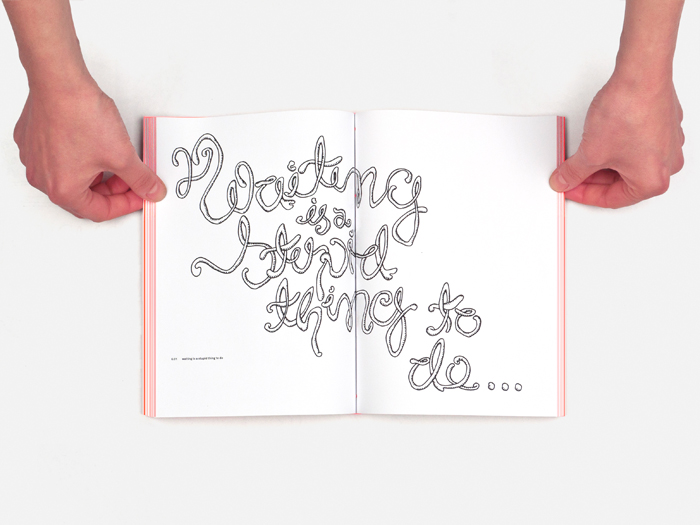 Waiting
is a
stupid
thing to
do...
waiting is a stupid thing to do